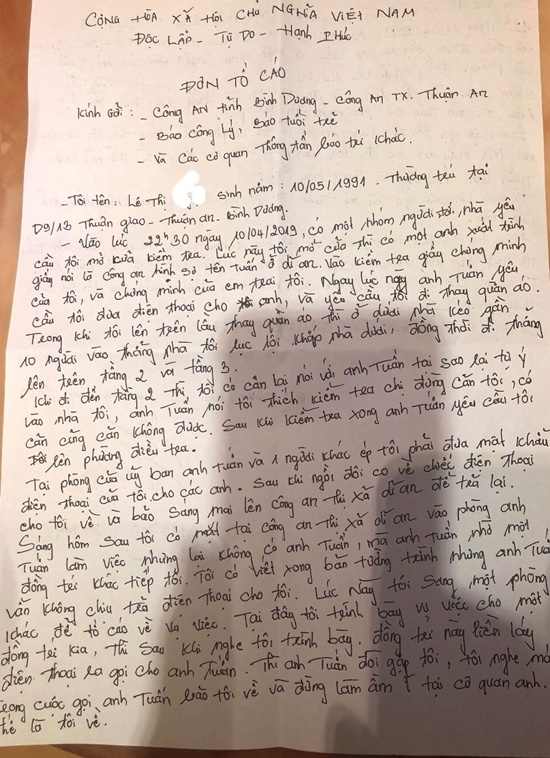 CỘNG HÒA XÃ HỘI CHỦ NGHĨA VIỆT NAM
ĐỘC LẬP - TỰ DO - HẠNH PHÚC
ĐƠN TỐ CÁO
Kính Gởi : - CÔNG AN tỉnh BÌNH DƯƠNG - CÔNG An TX. Thuận An
- Báo Công Lý, Báo tuổi trẻ
- Và Các cơ quan Thông tấn báo trí khác.
- Tôi tên : Lê Thị sinh năm : 10/05/1991 - Thường trú tại
D9/13 Thuận giao - Thuận an - Bình Dương.
- Vào lúc 22h30 ngày 10/04/2019, có một nhóm người tới, nhà yêu
cầu tôi mở cửa kiểm tra. Lúc này tôi mở cửa thì có một anh xuất trình
giấy nói là công an hình sự tên Tuấn ở dĩ an. Vào kiểm tra giấy chứng minh
của tôi, và chứng minh của em trai tôi. Ngay lúc này anh Tuấn yêu
cầu tôi đưa điện thoại cho anh, và yêu cầu tôi đi thay quần áo.
Trong khi tôi lên trên lầu thay quần áo thì ở dưới nhà kéo gần
10 người vào thẳng nhà tôi lục lội khắp nhà dưới, đồng thời đi thẳng
lên trên tầng 2 và tầng 3.
Khi đi đến tầng 2 Thì tôi có cản lại nói với anh Tuấn tại sao lại tự ý
vào nhà tôi, anh Tuấn nói tôi thích kiểm tra chị đừng cản tôi, có
cản cũng cản không được. Sau khi kiểm tra xong anh Tuấn yêu cầu tôi
lên phường điều tra.
Tại phòng của ủy ban anh tuấn và 1 người khác ép tôi phải đưa mật khẩu
điện thoại của tôi cho các anh. Sau khi ngồi đôi co về chiếc điện thoại
cho tôi về và bảo sang mai lên công an Thị xã dĩ an để trả lại.
Sáng hôm sau tôi có mặt tại công an thị xã dĩ an vào phòng anh
Tuấn làm việc nhưng lại không có anh Tuấn, mà anh tuấn nhờ một
đồng trí khác tiếp tôi. Tôi có viết xong bản tường trình nhưng anh Tuấn
vẫn không chịu trả điện thoại cho tôi. Lúc này tôi sang một phòng
khác, để tố cáo về vụ việc. Tại đây tôi trình bày vụ việc cho một
đồng trí kia, thì sau khi nghe tôi trình bày. đồng trí này liền lấy
điện thoại ra gọi cho anh Tuấn. Thì anh Tuấn đòi gặp tôi, tôi nghe máy
trong cuộc gọi anh Tuấn bảo tôi về và đừng làm ầm ĩ tại cơ quan anh.
thế là tôi về.